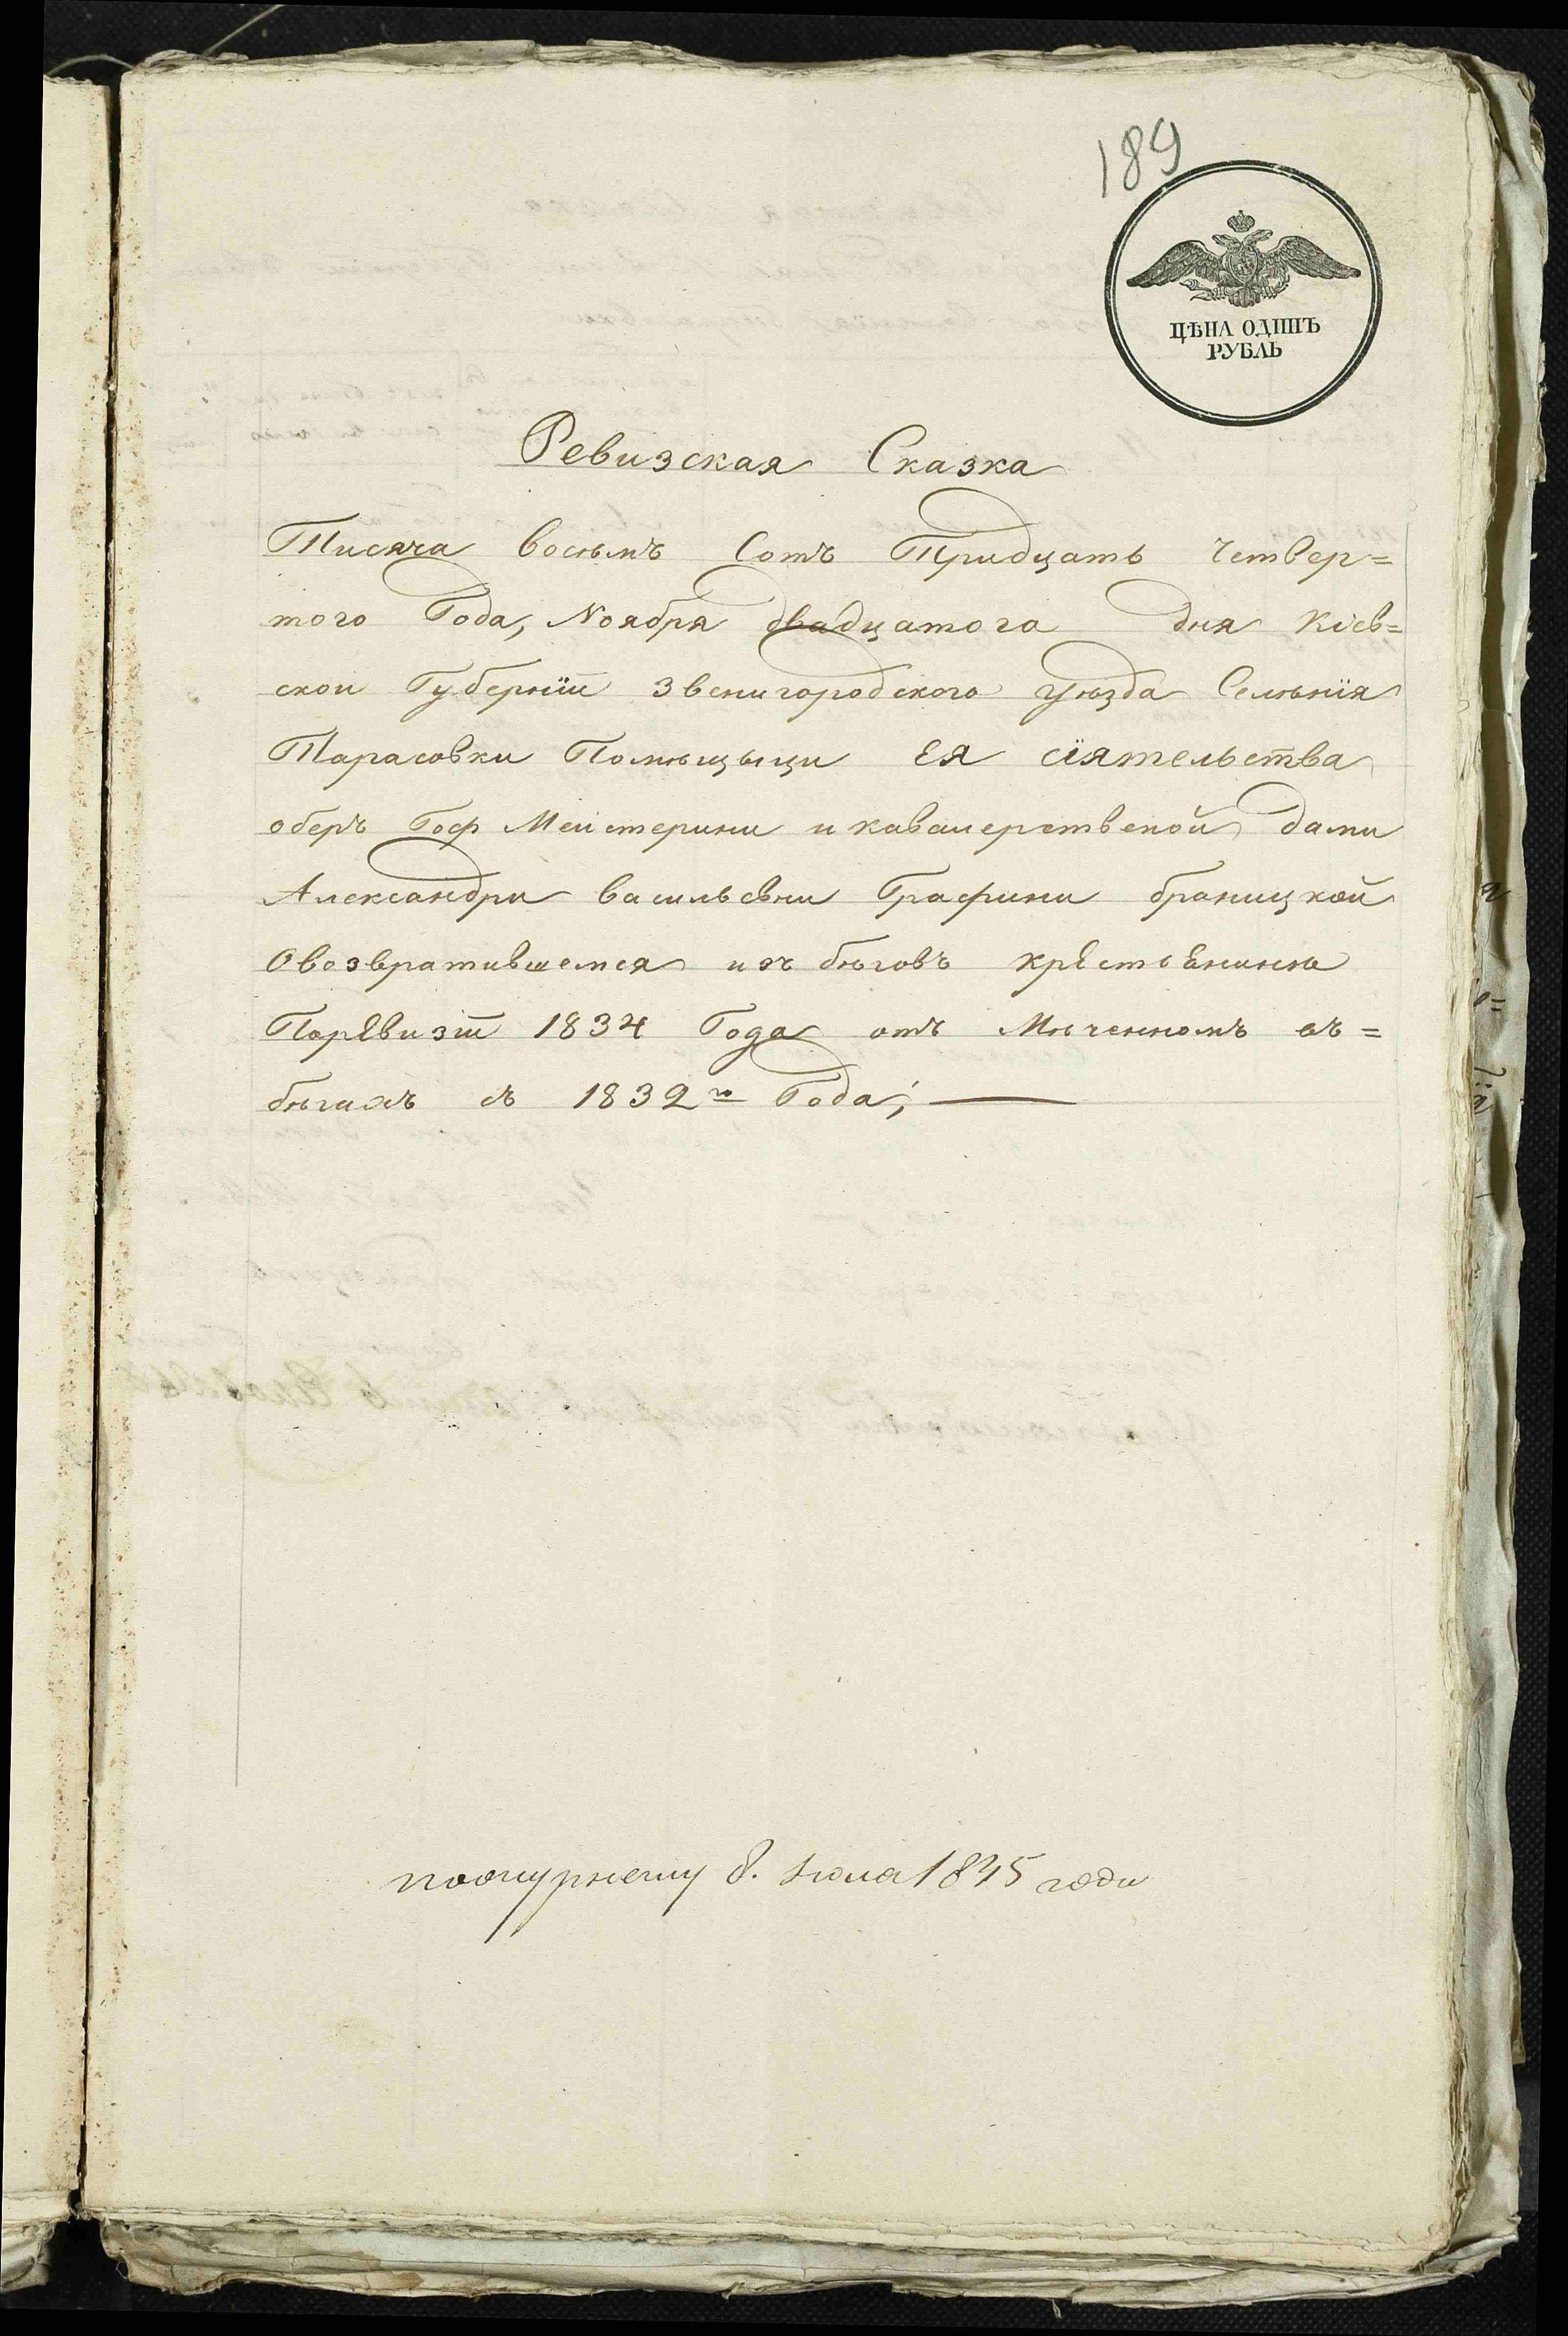 189
ЦѢНА ОДИНЪ
РУБЛЬ
Ревизская Сказка
Тисяча восѣмъ Сотъ Тридцать четвер=
того Года, Ноября двадцатого дня Кіев=
скои Губерніи Звенигородского уѣзда Селѣнія
Тарасовки Помѣщыци Ея сіятельства
оберъ Гоф Меистерини и кавалерственой дами
Александри васильевни Графини браницкой
Овозвратившемся изъ бѣговъ крестьянинѣ
Поревизіи 1834 Года отъ Мѣченномъ въ=
бѣгахъ съ 1832го Года; —
8. Июля 1835 года